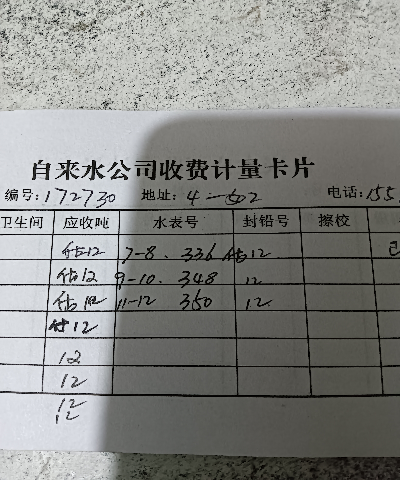 自来水公司收费计量卡片
编号:172730 地址:4-502 电话:155
卫生间 应收吨 水表号 封铅号 擦校
估12 7-8. 336 估12
估12 9-10. 348 12
估12 11-12 360 12
估12
12
12
12
12